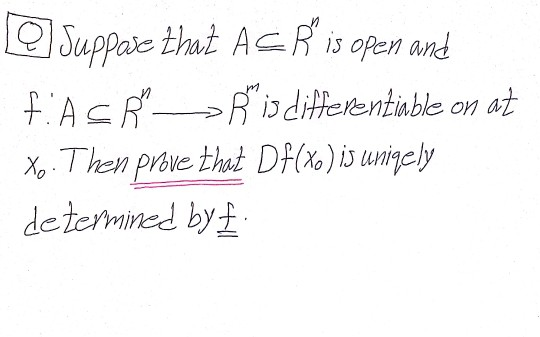 Q Suppose that A ⊆ Rⁿ is open and
f: A ⊆ Rⁿ ⟶ Rᵐ is differentiable on at
x₀. Then prove that Df(x₀) is uniqely
determined by f.